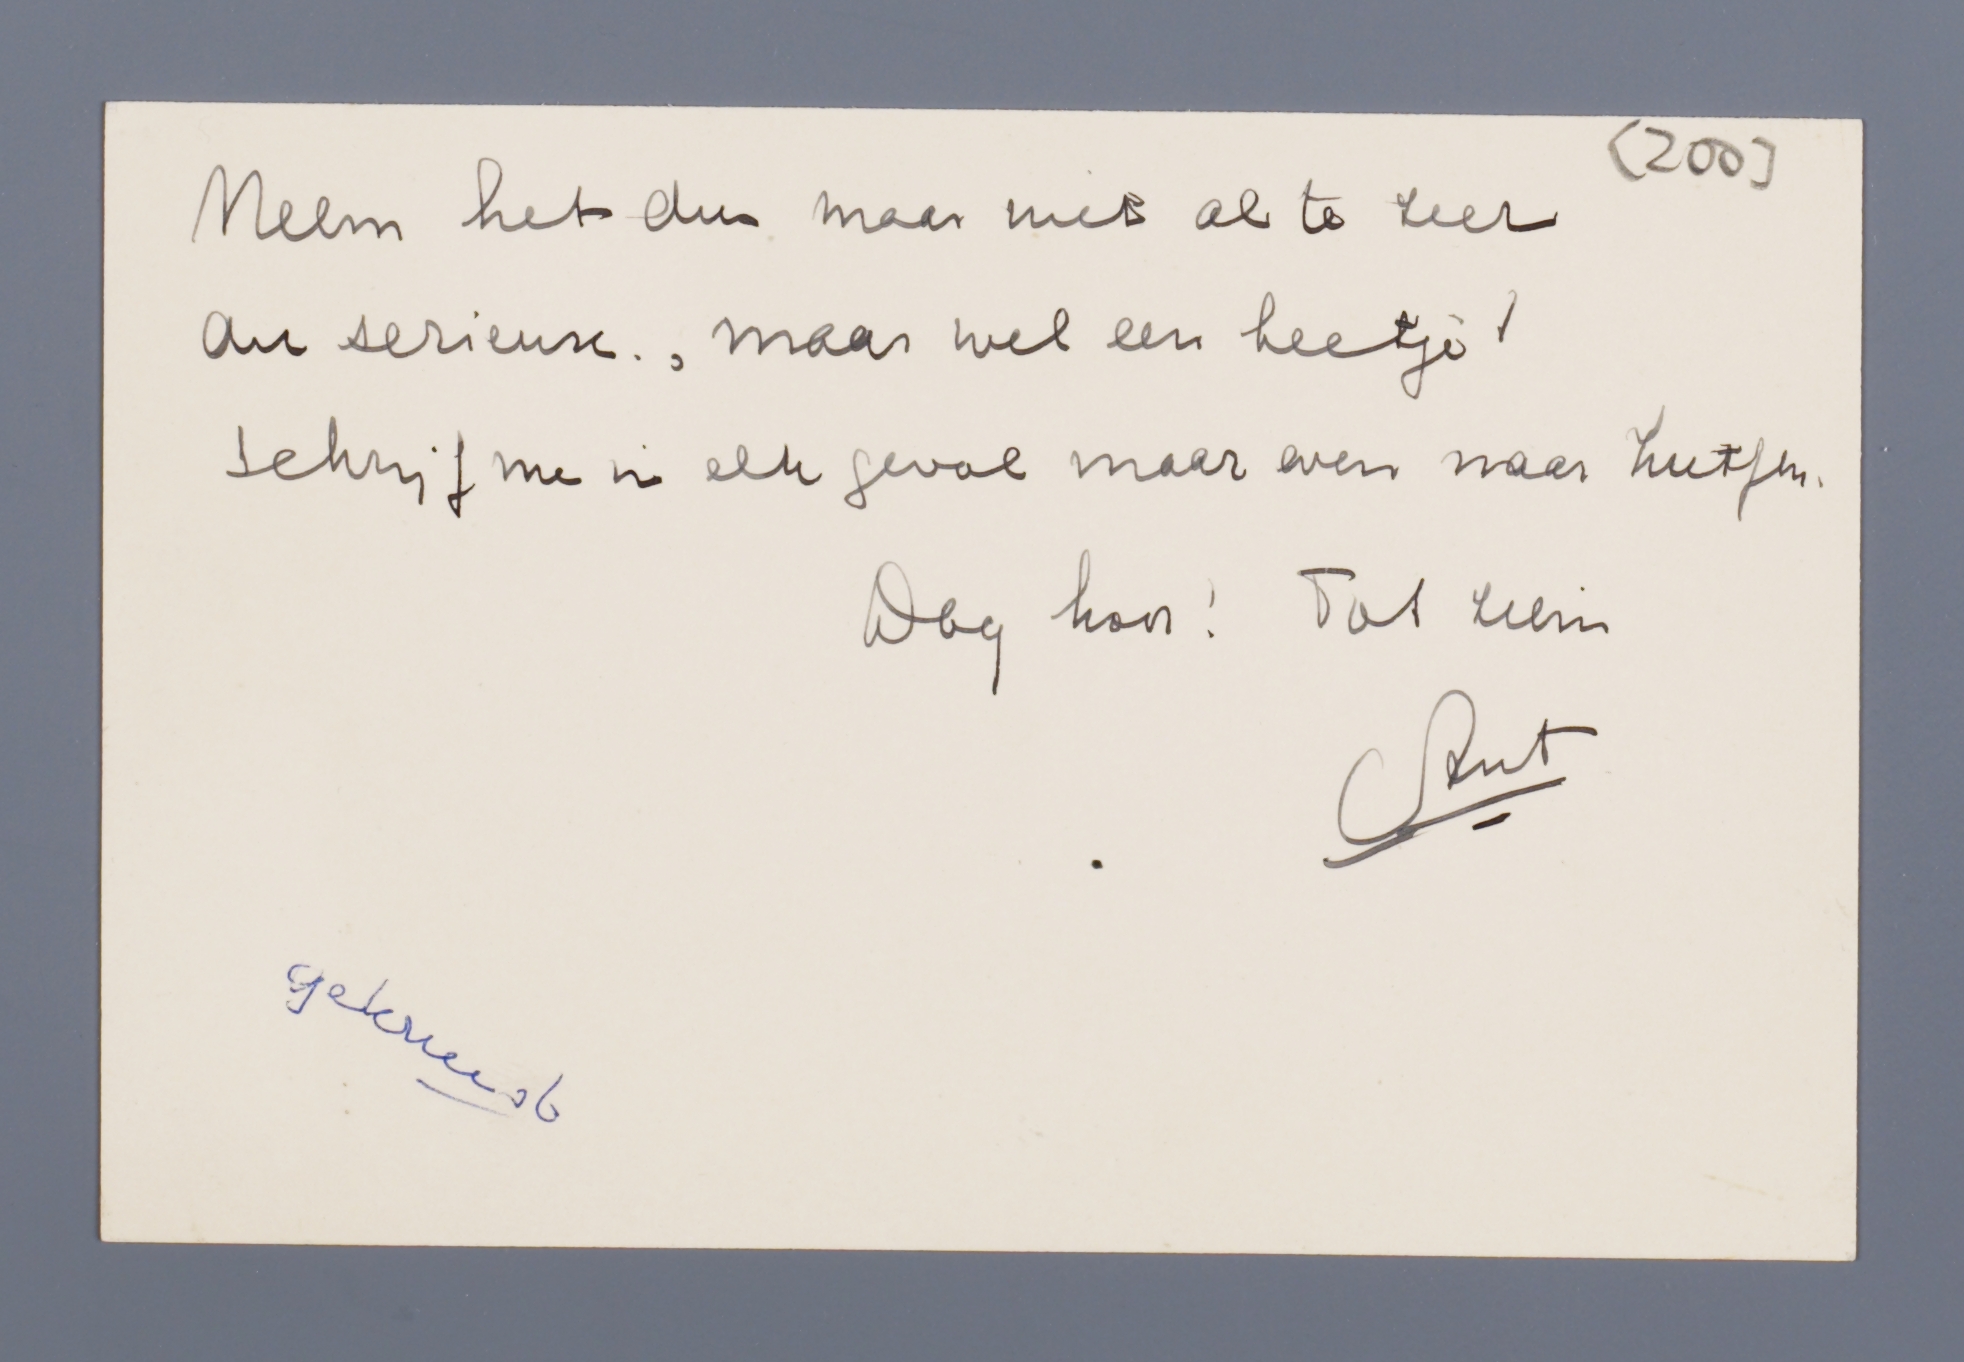 (200]
Neem het dus maar niet al te zeer
au serieux., maar wel een beetje!
Schrijf me in elk geval maar even naar Zutfen.
Dag hoor! Tot ziens
Ant